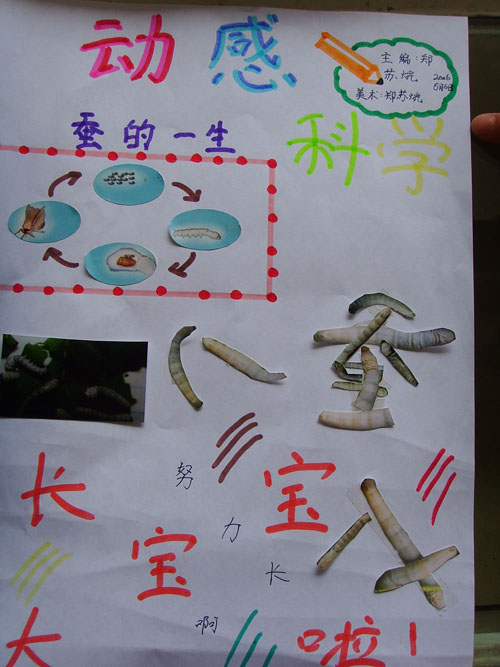 动感
主编:郑
苏烷
2006
美术:郑苏烷
科学
蚕的一生
蚕
长
宝
宝
努
力
长
啊
大
啦!